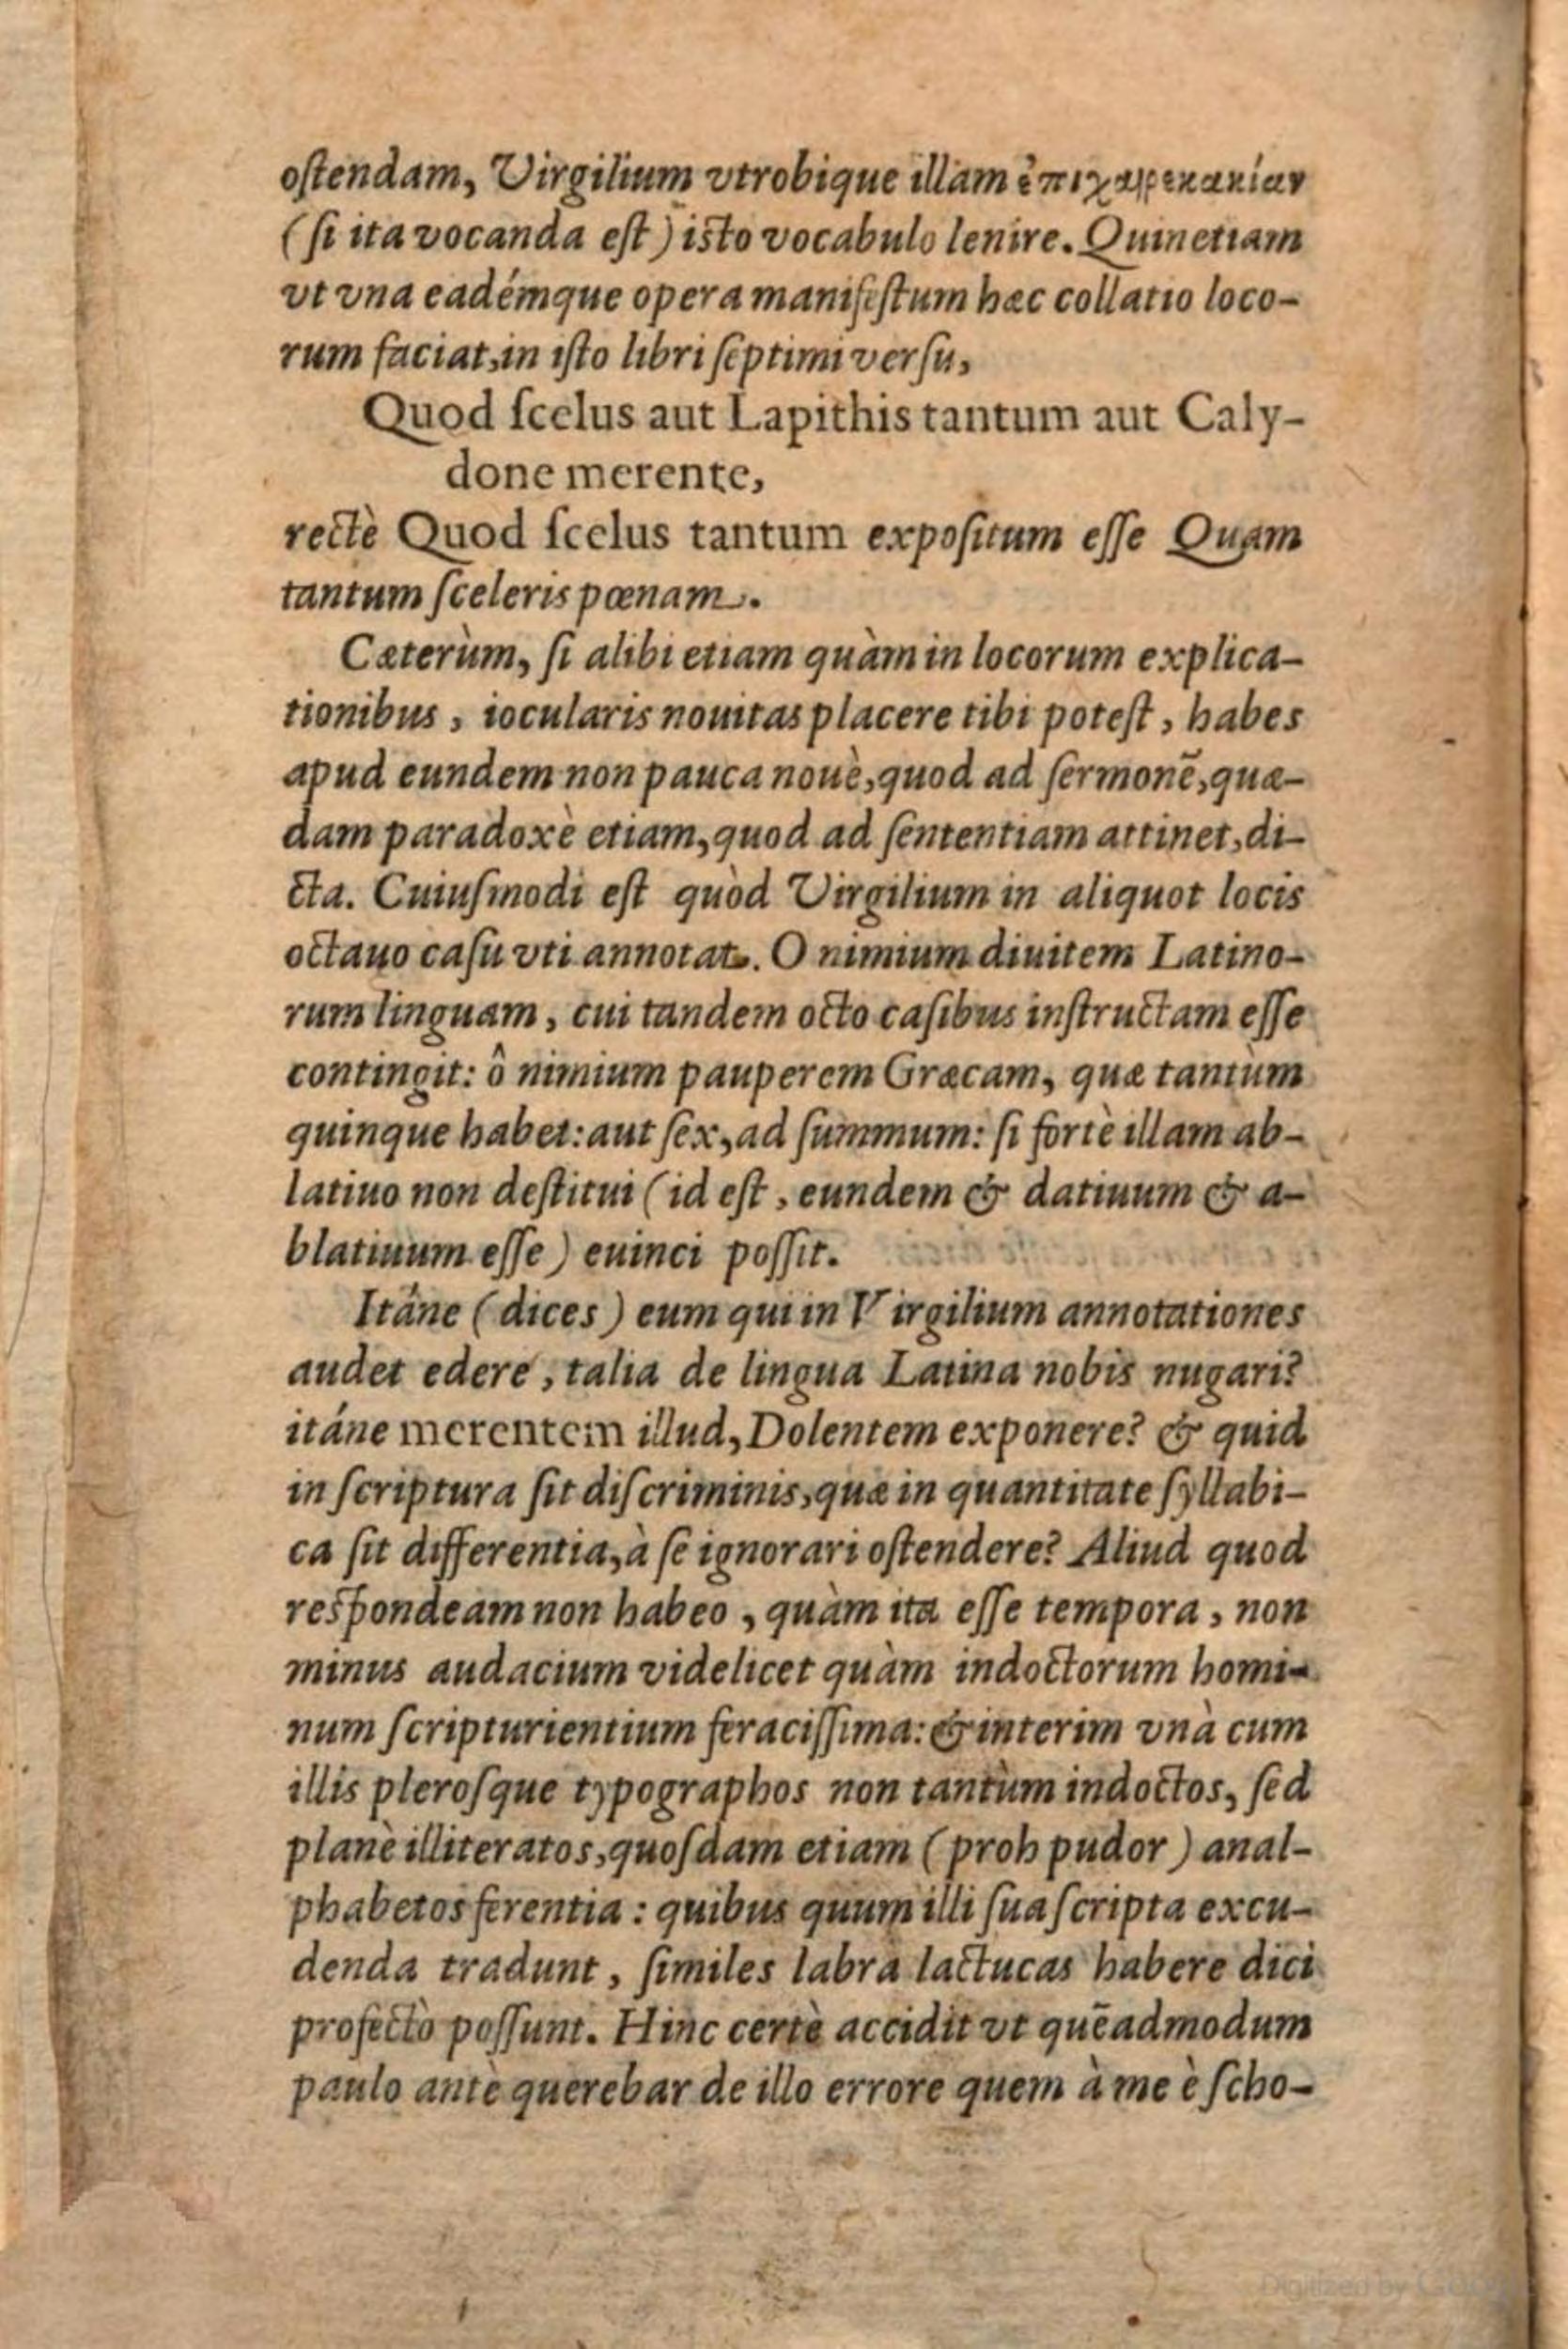 oſtendam, Virgilium vtrobique illam ἐπιχαιρεκακίαν
(ſi ita vocanda eſt) iſto vocabulo lenire. Quinetiam
vt vna eadémque opera manifeſtum hæc collatio loco-
rum faciat, in iſto libri ſeptimi verſu,
Quod ſcelus aut Lapithis tantum aut Caly-
done merente,
rectè Quod ſcelus tantum expoſitum eſſe Quam
tantum ſceleris pœnam.
Cæterùm, ſi alibi etiam quàm in locorum explica-
tionibus, iocularis nouitas placere tibi poteſt, habes
apud eundem non pauca nouè, quod ad ſermonē, quæ-
dam paradoxè etiam, quod ad ſententiam attinet, di-
cta. Cuiuſmodi eſt quòd Virgilium in aliquot locis
octauo caſu vti annotat. O nimium diuitem Latino-
rum linguam, cui tandem octo caſibus inſtructam eſſe
contingit: ô nimium pauperem Græcam, quæ tantùm
quinque habet: aut ſex, ad ſummum: ſi fortè illam ab-
latiuo non deſtitui (id eſt, eundem & datiuum & a-
blatiuum eſſe) euinci poſſit.
Itáne (dices) eum qui in Virgilium annotationes
audet edere, talia de lingua Latina nobis nugari?
itáne merentem illud, Dolentem exponere? & quid
in ſcriptura ſit diſcriminis, quæ in quantitate ſyllabi-
ca ſit differentia, à ſe ignorari oſtendere? Aliud quod
reſpondeam non habeo, quàm ita eſſe tempora, non
minus audacium videlicet quàm indoctorum homi-
num ſcripturientium feraciſſima: & interim vnà cum
illis pleroſque typographos non tantùm indoctos, ſed
planè illiteratos, quoſdam etiam (proh pudor) anal-
phabetos ferentia: quibus quum illi ſua ſcripta excu-
denda tradunt, ſimiles labra lactucas habere dici
profectò poſſunt. Hinc certè accidit vt quēadmodum
paulo antè querebar de illo errore quem à me è ſcho-
Digitized by Google